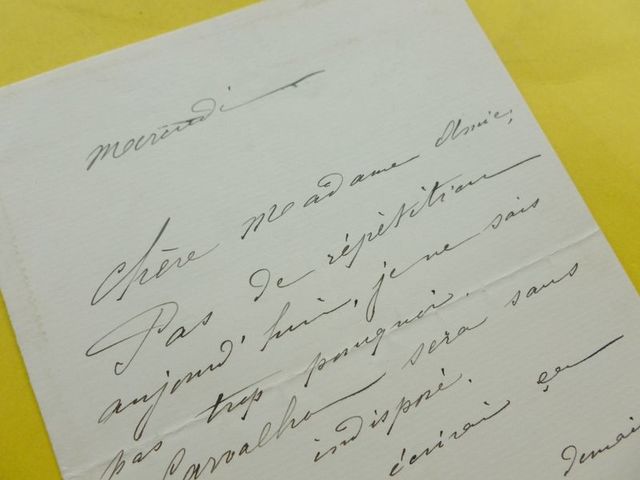 mercredi
Chère Madame Amie,
Pas de répétition
aujourd'hui, je ne sais
pas trop pourquoi.
Carvalho sera sans
indisposé.
écrirai
demain